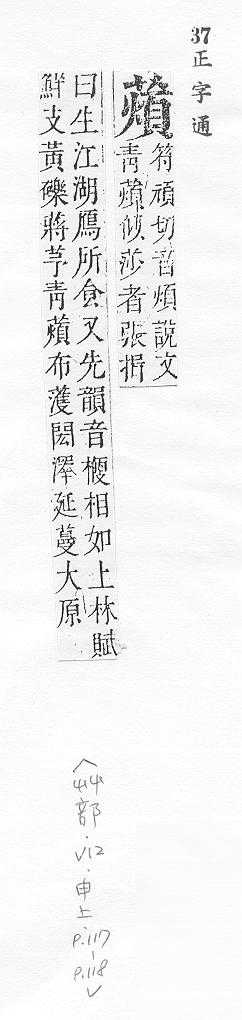 37正字通
薠
符頑切音煩說文
青薠似莎者張揖
曰生江湖鴈所食又先韻音楩相如上林賦
鮮支黃礫蔣芧青薠布濩閎澤延蔓大原
(艸部.V12.申上.p.117-p.118)